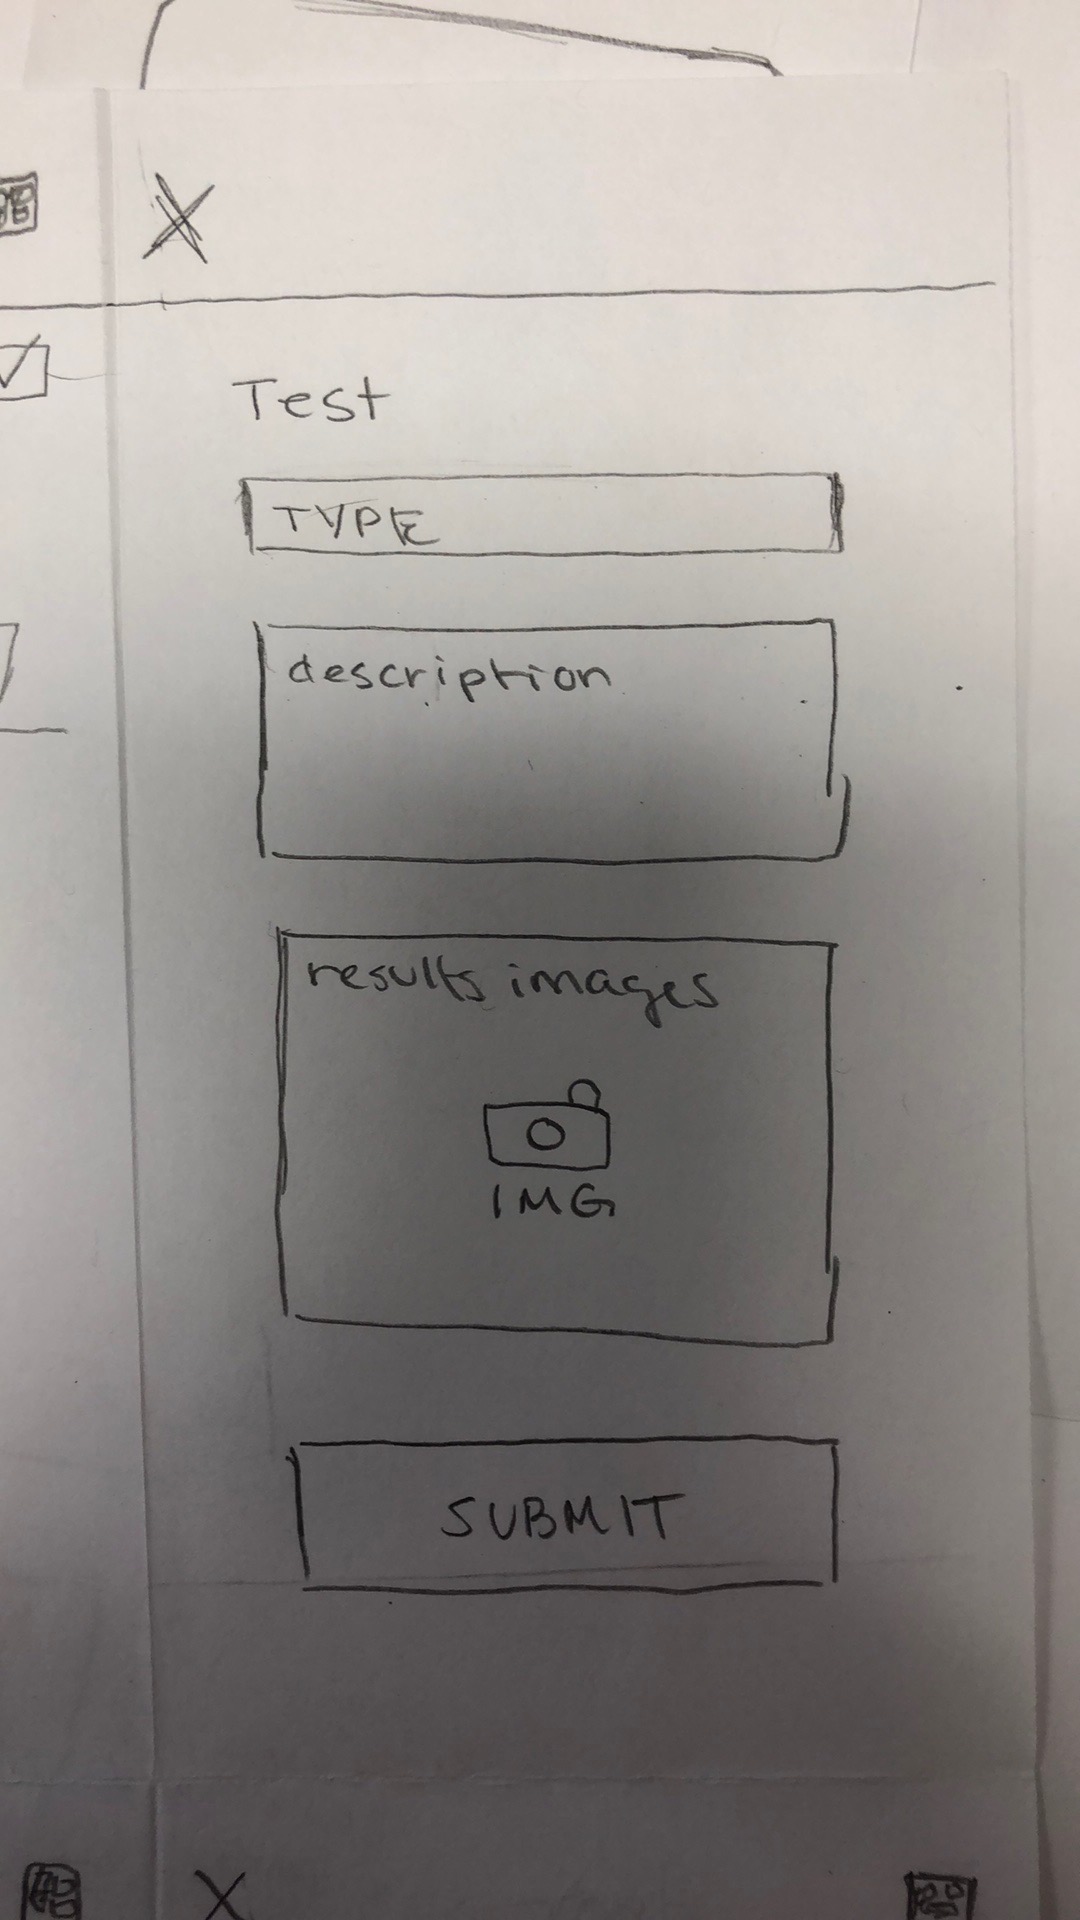 X
Test
TYPE
description
results images
IMG
SUBMIT
X